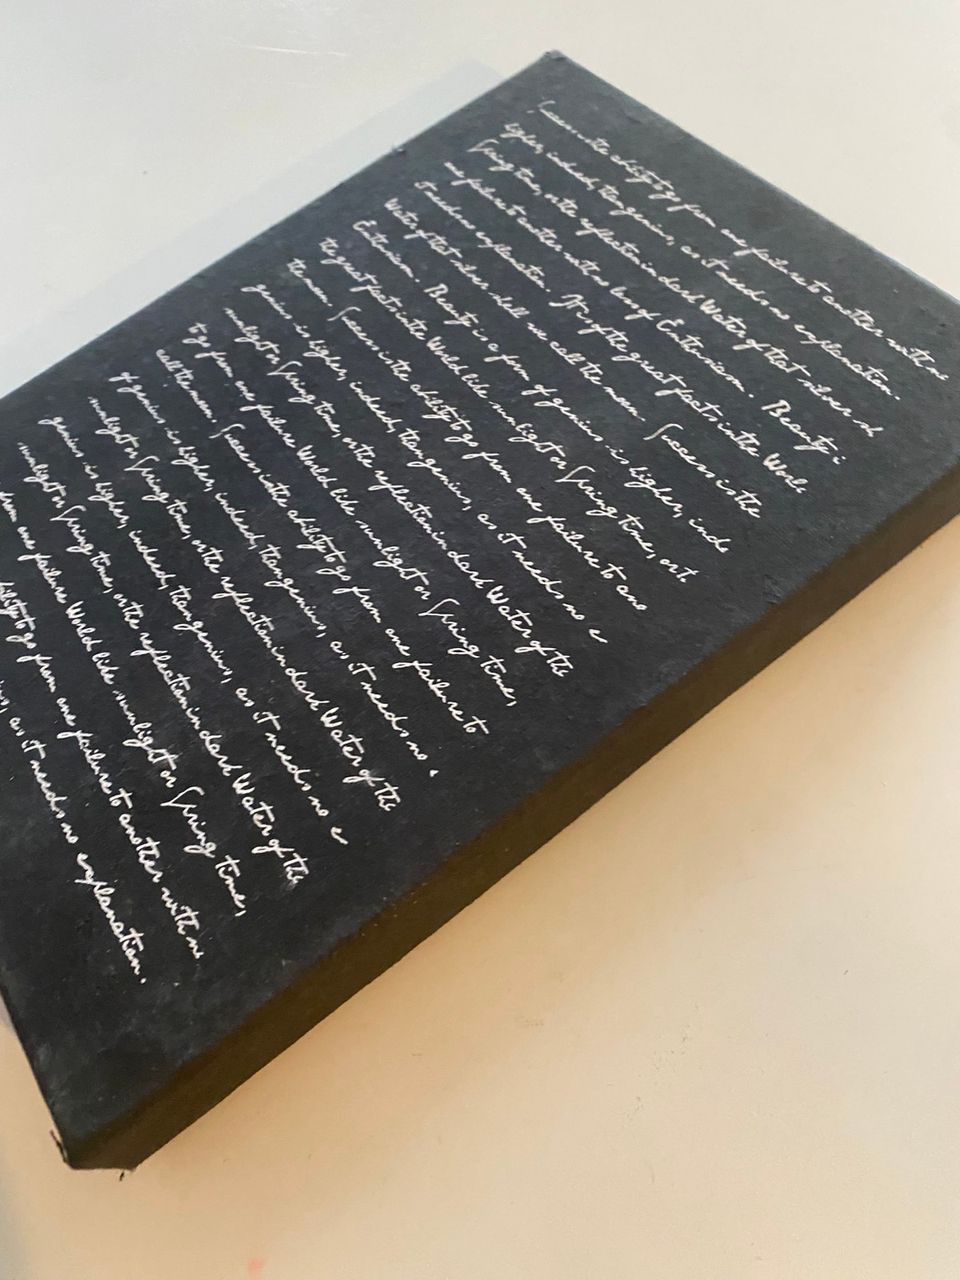 Success is the ability to go from one failure to another with no
higher, indeed, than genius, as it needs no explanation.
Spring time, or the reflection in dark Water of that silver sh
one failure to another with no loss of Entusiasm. Beauty i
it needs no explanation. It's of the great facts in the Worl
Water of that silver shell we call the moon. Success is the
Entusiasm. Beauty is a form of genius is higher, inde
the great facts in the World like sunlight or Spring time, or t
the moon. Success is the ability to go from one failure to ano
genius is higher, indeed, than genius, as it needs no e
sunlight or Spring time, or the reflection in dark Water of the
to go from one failure World like sunlight or Spring time,
call the moon. Success is the ability to go from one failure to
of genius is higher, indeed, than genius, as it needs no
sunlight or Spring time, or the reflection in dark Water of the
genius is higher, indeed, than genius, as it needs no e
sunlight or Spring time, or the reflection in dark Water of the
from one failure World like sunlight or Spring time,
ability to go from one failure to another with no
as it needs no explanation.